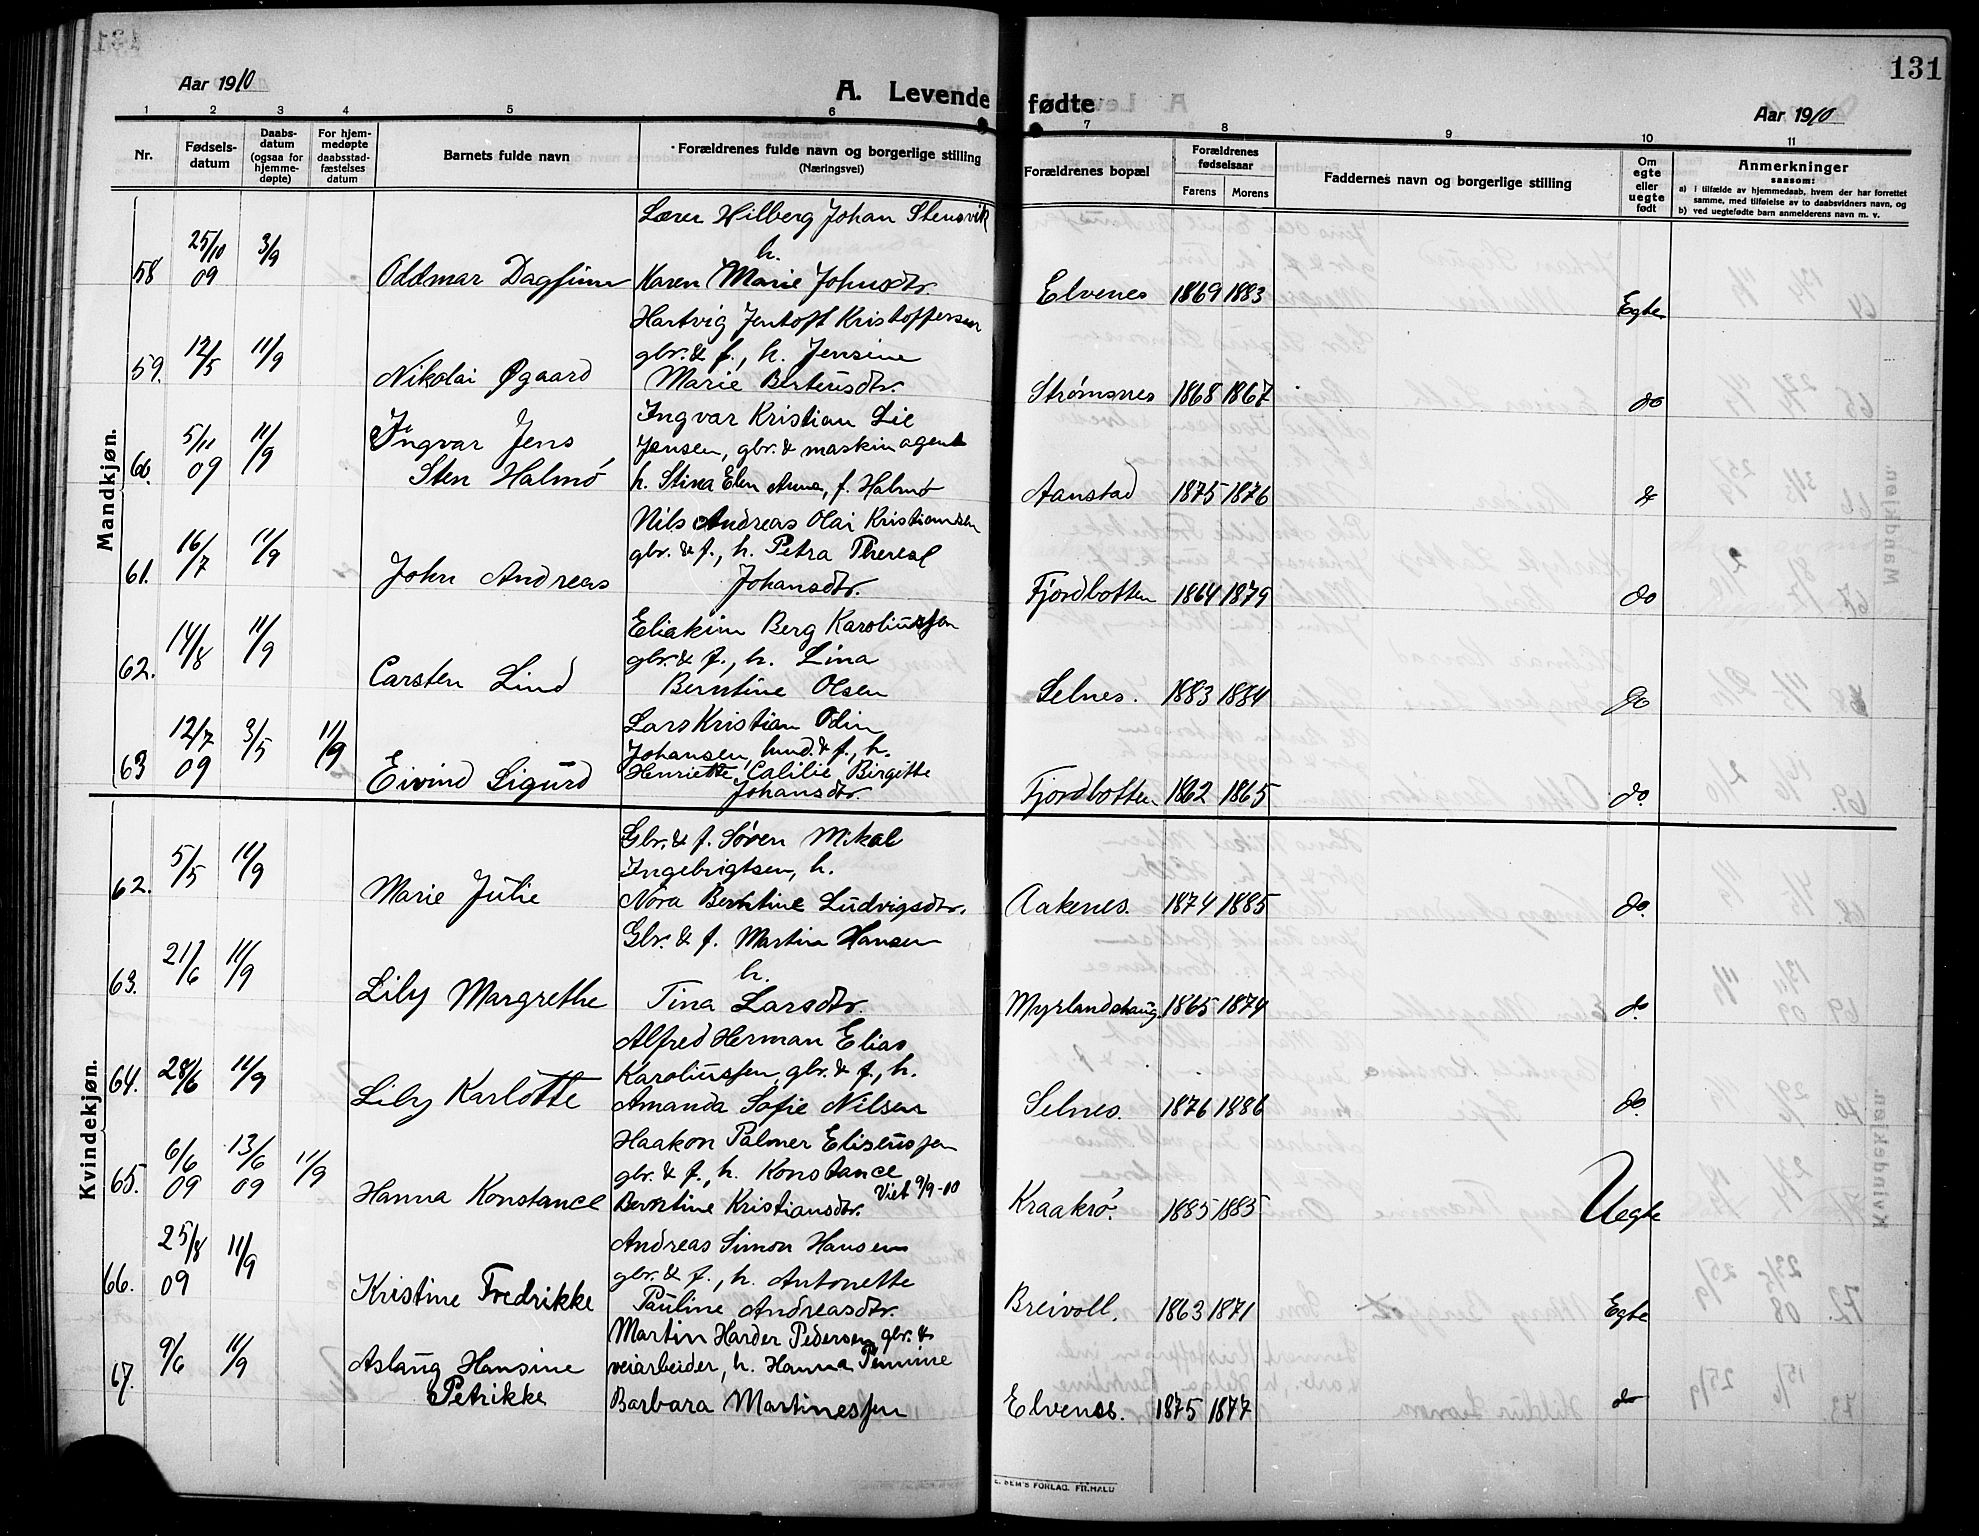 131
Aar 1910
A. Levende fødte
Aar 1910
1 2 3 4 5 6 7 8 9 10 11
Nr.
Fødsels-
datum
Daabs-
datum
(ogsaa for
hjemme-
døpte)
For hjem-
medøpte
daabsstad-
fæstelses
datum
Barnets fulde navn
Forældrenes fulde navn og borgerlige stilling
(Næringsvei)
Forældrenes bopæl
Forældrenes
fødselsaar
Farens Morens
Faddernes navn og borgerlige stilling
Om
egte
eller
uegte
født
Anmerkninger
saasom:
a) i tilfælde av hjemmedaab, hvem der har forrettet
samme, med tilføielse av to daabsvidners navn, og
b) ved uegtefødte barn anmelderens navn m. v.
Mandkjøn.
Lærer Hilberg Johan Stensvik
h.
58 25/10 09 3/9 Oddmar Dagfinn Karen Marie Johnsdtr. Elvenes 1869 1883 Egte
Hartvig Jentoft Kristoffersen
gbr. & f., h. Jensine
59. 12/5 11/9 Nikolai Øgaard Marie Berteusdtr. Strømsnes 1868 1867 do
Ingvar Kristian Lie
60. 5/11 09 11/9 Ingvar Jens Jensen, gbr. & maskinagent
Sten Halmø h. Stina Elen Anna, f. Halmø Aanstad 1875 1876 do
Nils Andreas Olai Kristiansen
gbr. & f., h. Petra Theresl
61. 16/7 11/9 John Andreas Johansdtr. Fjordbotten 1864 1879 do
Eliakim Berg Karoliussen
gbr. & f., h. Lina
62. 14/8 11/9 Carsten Lind Berntine Olsen Selnes. 1883 1884 do
Lars Kristian Odin
Johansen, hmd. & f., h.
Henriette Calilie Birgitte
63 12/7 09 3/5 11/9 Eivind Sigurd Johansdtr. Fjordbotten 1862 1865 do.
Kvindekjøn.
Gbr. & f. Søren Mikal
Ingebrigtsen, h.
62. 5/5 11/9 Marie Julie Nora Berntine Ludvigsdtr. Aakenes. 1874 1885 do.
Gbr. & f. Martin Hansen
h.
63. 21/6 11/9 Lily Margrethe Tina Larsdtr. Myrlandshaug. 1865 1874 do.
Alfred Herman Elias
Karoliussen, gbr. & f., h.
64. 28/6 11/9 Lily Karlotte Amanda Sofie Nilsen Selnes. 1876 1886 do.
Haakon Palmer Eliseussen
gbr. & f., h. Konstance
Viet 9/9-00
65. 6/6 09 13/6 09 11/9 Hanna Konstance Berntine Kristiansdtr. Kraakrø. 1885 1885 Uegte
Andreas Simon Hansen
gbr. & f., h. Antonette
66. 25/8 09 11/9 Kristine Fredrikke Pauline Andreasdtr. Breivoll. 1863 1871 Egte
Martin Harder Pedersen, gbr. &
67. 9/6 11/9 Aslaug Hansine veiarbeider, h. Hanna Pennine
Petrikke Barbara Martinessen Elvenes. 1875 1877 do
E. SEM'S FORLAG, FR.HALD